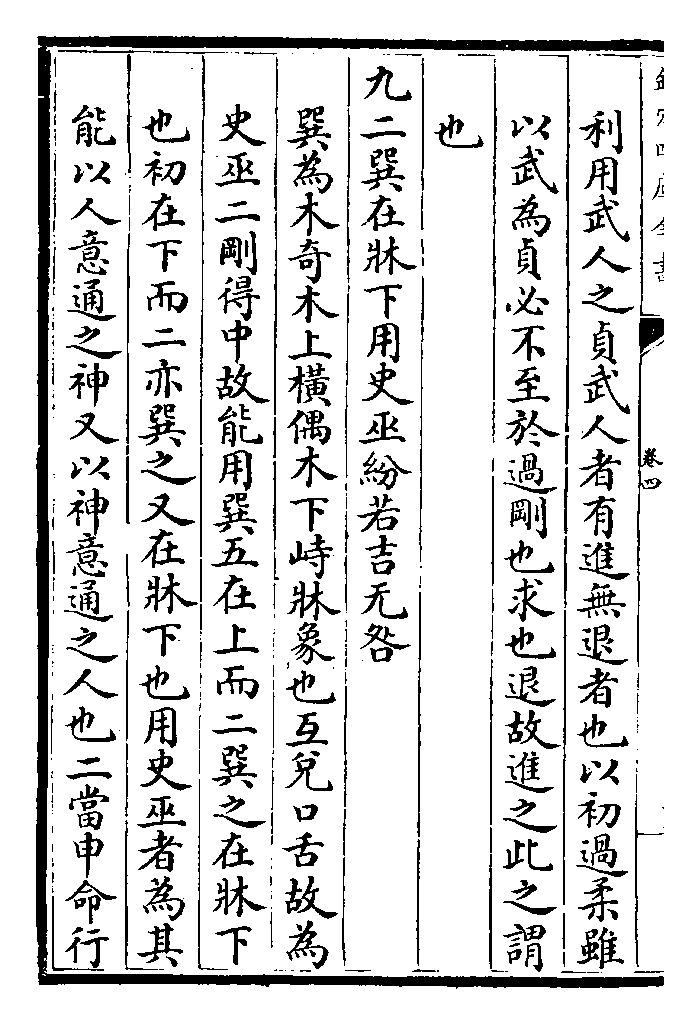 欽定四庫全書
卷四
利用武人之貞武人者有進無退者也以初過柔雖
以武為貞必不至於過剛也求也退故進之此之謂
也
九二巽在牀下用史巫紛若吉无咎
巽為木奇木上横偶木下峙牀象也互兌口舌故為
史巫二剛得中故能用巽五在上而二巽之在牀下
也初在下而二亦巽之又在牀下也用史巫者為其
能以人意通之神又以神意通之人也二當申命行